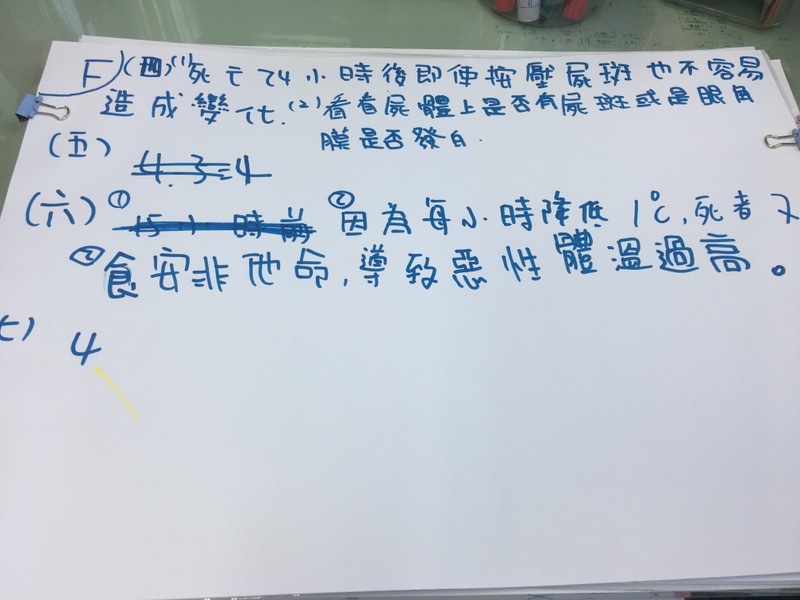 F (四)(1)死亡24小時後即使按壓屍斑也不容易
造成變化.(2)看看屍體上是否有屍斑或是眼角
膜是否發白.
(五) 4.3=4
(六)① ②因為每小時降低1℃,死者又
②食安非他命,導致惡性體溫過高。
七) 4